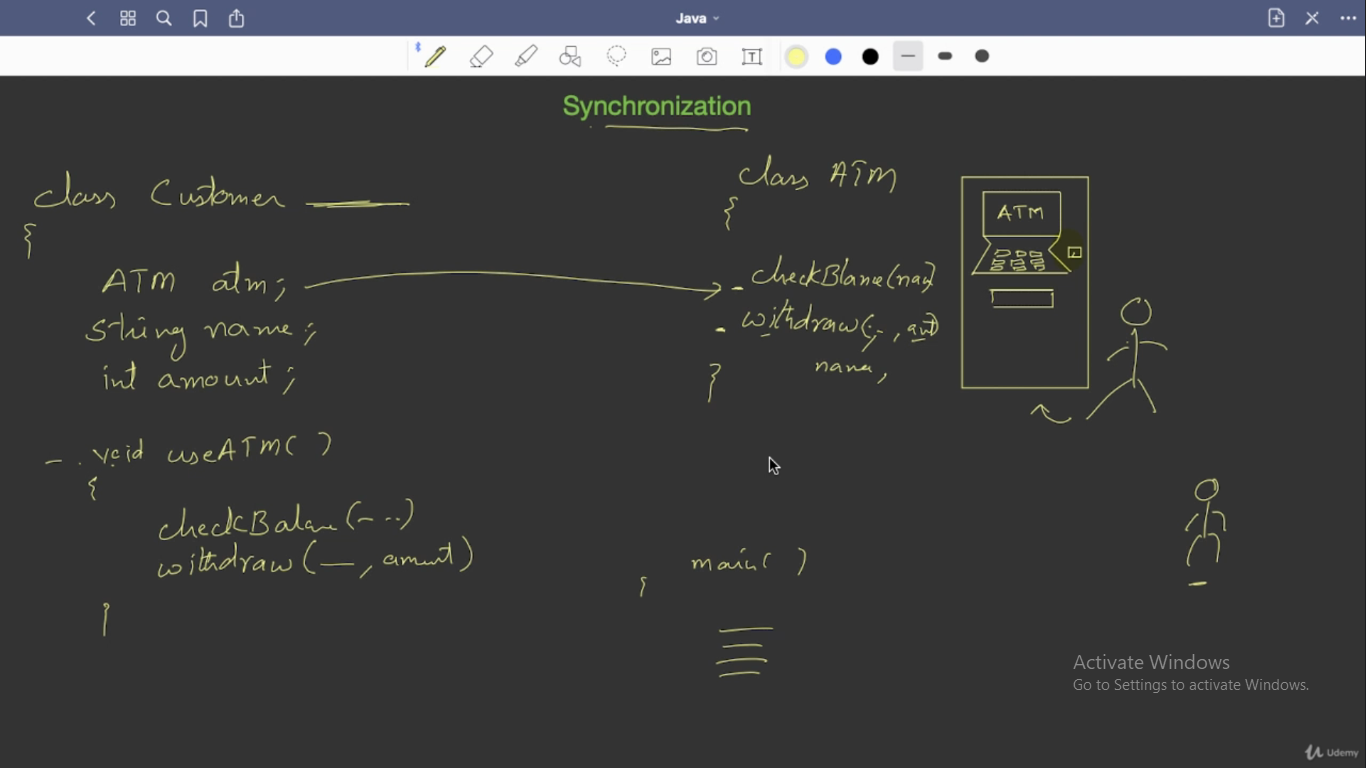 Java
Synchronization
class Customer
{
ATM atm;
string name;
int amount;
- . void useATM( )
{
checkBalane(- ..)
withdraw(—, amunt)
}
class ATM
{
- checkBlane(nam)
- withdraw( , amt)
name,
}
main( )
{
ATM
Activate Windows
Go to Settings to activate Windows.
Udemy